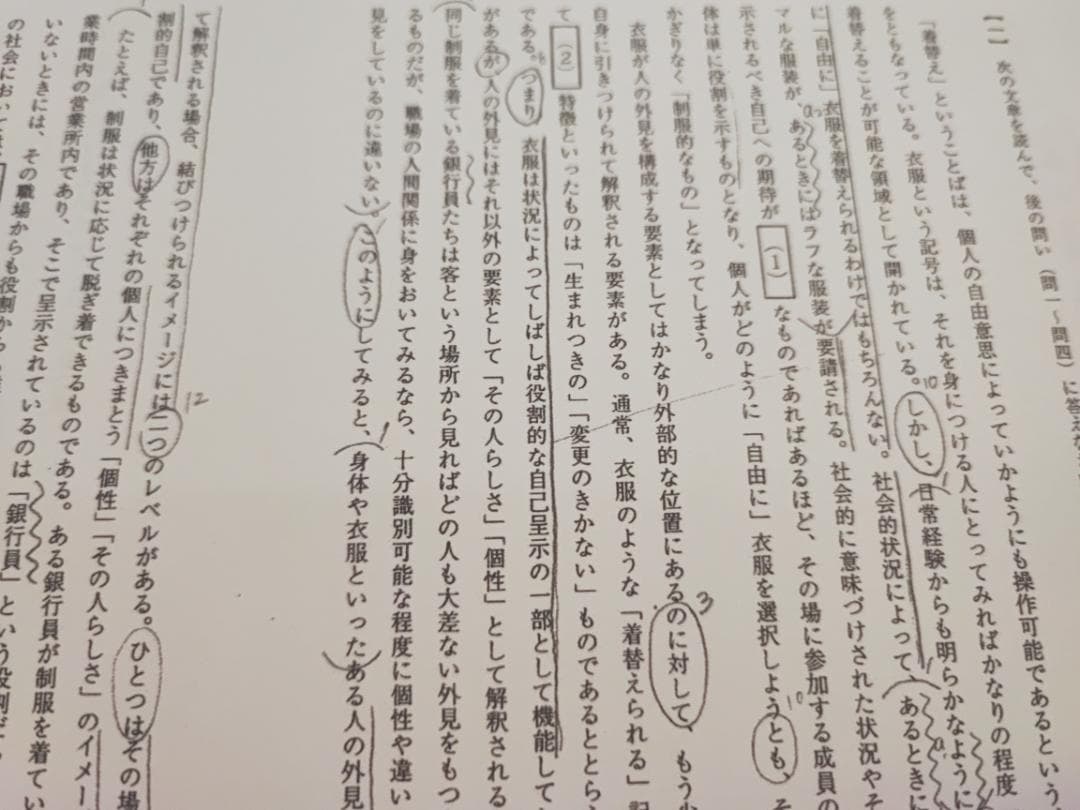 【一】 次の文章を読んで、後の問い（問一～問四）に答えな
「着替え」ということばは、個人の自由意思によっていかようにも操作可能であるという
をともなっている。衣服という記号は、それを身につける人にとってみればかなりの程度
着替えることが可能な領域として開かれている。しかし、日常経験からも明らかなように
に「自由に」衣服を着替えられるわけではもちろんない。社会的状況によって、あるときに
マルな服装が、あるときにはラフな服装が要請される。社会的に意味づけされた状況やそ
示されるべき自己への期待が（1）なものであればあるほど、その場に参加する成員の
体は単に役割を示すものとなり、個人がどのように「自由に」衣服を選択しようとも、そ
かぎりなく「制服的なもの」となってしまう。
衣服が人の外見を構成する要素としてはかなり外部的な位置にあるのに対して、もう少
自身に引きつけられて解釈される要素がある。通常、衣服のような「着替えられる」記
て（2）特徴といったものは「生まれつきの」「変更のきかない」ものであるととらえ
である。つまり衣服は状況によってしばしば役割的な自己呈示の一部として機能して
があるが、人の外見にはそれ以外の要素として「その人らしさ」「個性」として解釈される
同じ制服を着ている銀行員たちは客という場所から見ればどの人も大差ない外見をもつ
るものだが、職場の人間関係に身をおいてみるなら、十分識別可能な程度に個性や違い
見をしているのに違いない。このようにしてみると、身体や衣服といったある人の外見
て解釈される場合、結びつけられるイメージには二つのレベルがある。ひとつはその場
割的自己であり、他方はそれぞれの個人につきまとう「個性」「その人らしさ」のイメー
たとえば、制服は状況に応じて脱ぎ着できるものである。ある銀行員が制服を着てい
業時間内の営業所内であり、そこで呈示されているのは「銀行員」という役割だ
いないときには、その職場からも役割から
の社会において
10
3
12